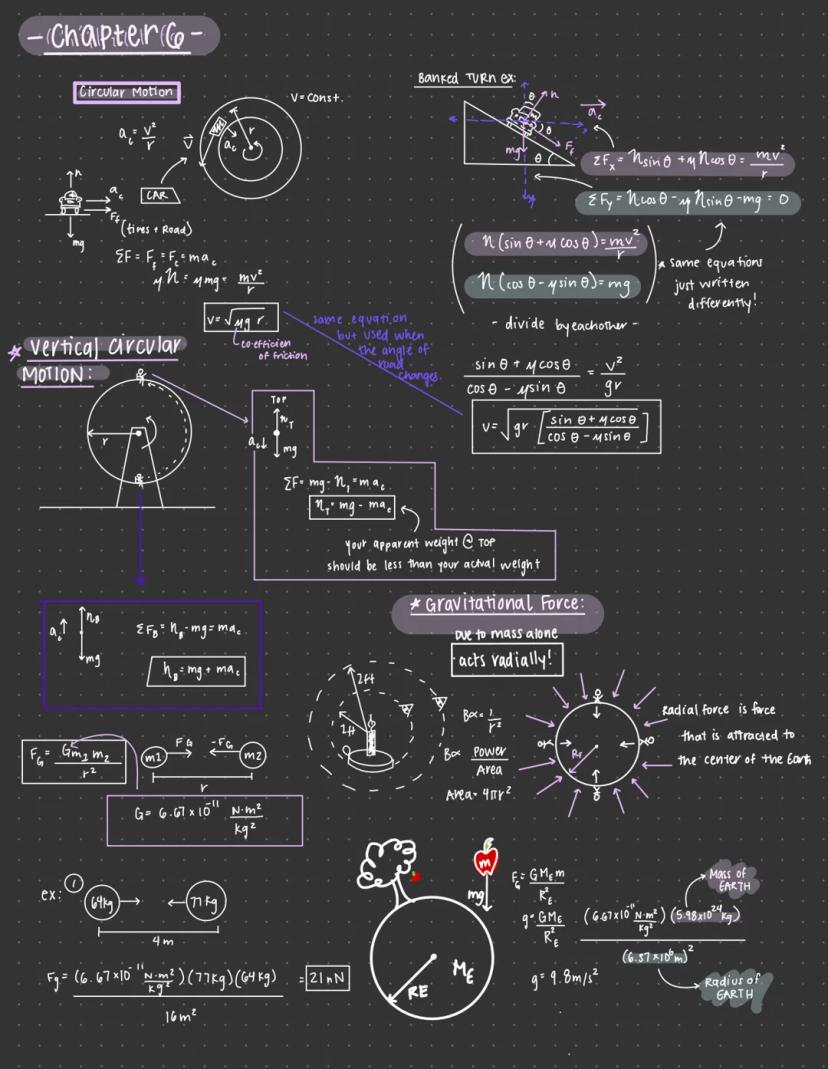 - Chapter 6 -
Circular Motion
V = Const.
a_c = v²/r
V
r
a_c
CAR
n
a_c
F_f
(tires + Road)
mg
ΣF = F_f = F_c = ma_c
μn = μmg = mv²/r
v = √μg r
co-efficien
of friction
same equation
but used when
the angle of
road
changes.
Banked TURN ex:
θ
n
a_c
θ
F_f
mg
θ
ΣF_x = n sinθ + μ n cosθ = mv²/r
ΣF_y = n cosθ - μ n sinθ - mg = 0
n (sin θ + μ cos θ) = mv²/r
n (cos θ - μ sin θ) = mg
* same equations
just written
differently!
- divide by eachother -
sin θ + μ cos θ / cos θ - μ sin θ = v²/gr
v = √gr [sin θ + μ cos θ / cos θ - μ sin θ]
* Vertical Circular
MOTION:
r
TOP
n_T
a_c
mg
ΣF = mg - n_T = m a_c
n_T = mg - ma_c
your apparent weight @ TOP
should be less than your actual weight
n_B
a_c
mg
ΣF_B = n_B - mg = ma_c
n_B = mg + ma_c
* Gravitational Force:
Due to mass alone
acts radially!
2ft
1ft
B ∝ 1/r²
B ∝ Power/Area
Area = 4πr²
Radial force is force
that is attracted to
the center of the Earth
F_G = G m_1 m_2 / r²
m1
F_G
-F_G
m2
r
G = 6.67 x 10⁻¹¹ N·m²/kg²
ex: 1
64kg
77kg
4m
Fg = (6.67x10⁻¹¹ N·m²/kg²)(77kg)(64kg) / 16m² = 21nN
m
mg
RE
M_E
F_G = GM_E m / R_E²
g = GM_E / R_E²
(6.67x10⁻¹¹ N·m²/kg²)(5.98x10²⁴kg) / (6.37x10⁶m)²
Mass of
EARTH
Radius of
EARTH
g = 9.8m/s²